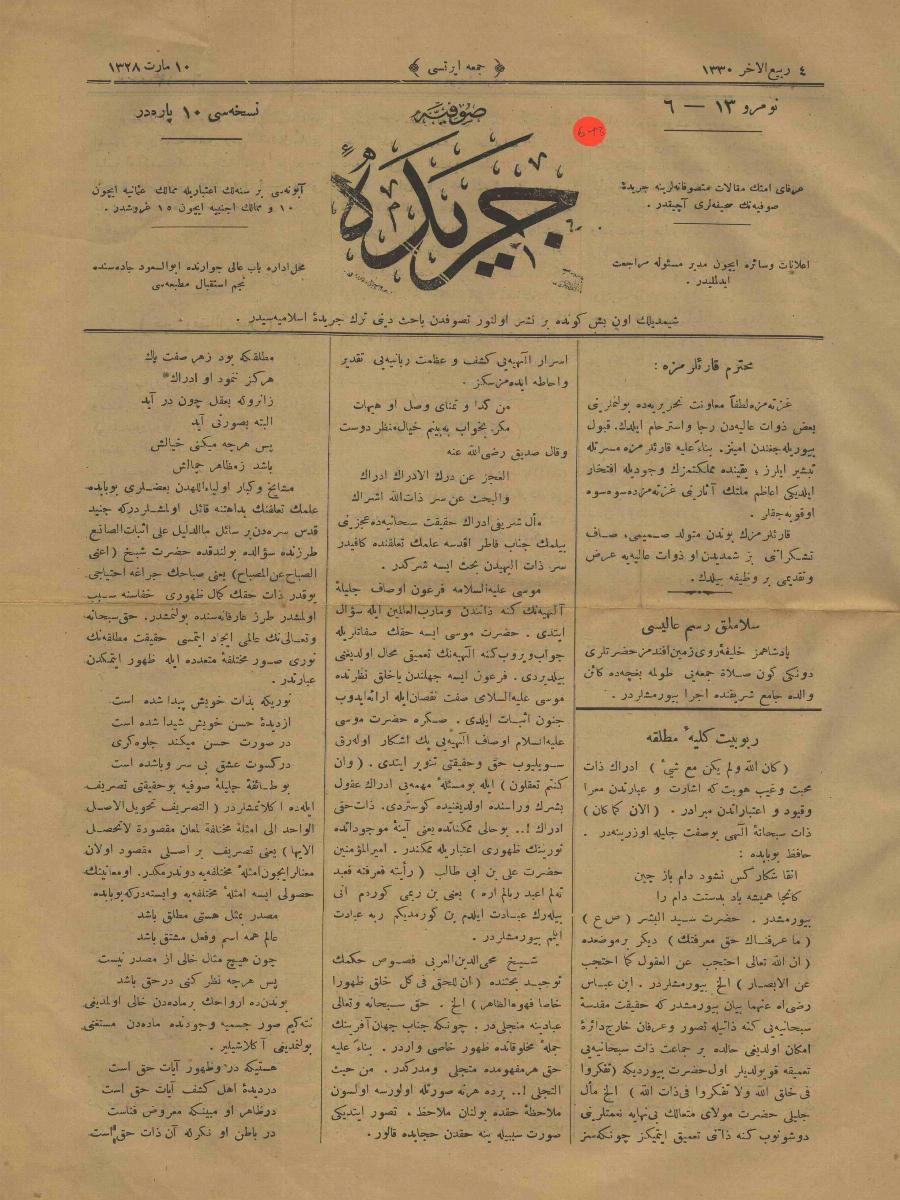 ٤ ربيع الاخر ١٣٣٠
﴿ جمعه ايرتسى ﴾
١٠ مارت ١٣٢٨
نومرو ١٣ — ٦
نسخه‌سى ١٠ پاره‌در
صوفيه
جريده
عرفاى امتك مقالات متصوفانه‌لرينه جريدۀ
صوفيه‌نك صحيفه‌لرى آچيقدر .
اعلانات وسائره ايچون مدير مسئوله مراجعت
ايدلمليدر .
آبونه‌سى بر سنه‌لك اعتباريله ممالك عثمانيه ايچون
١٠ و ممالك اجنبيه ايچون ١٥ غروشدر .
محل اداره باب عالى جوارنده ابوالسعود جاده‌سنده
نجم استقبال مطبعه‌سى
شيمديلك اون بش كونده بر نشر اولنور تصوفدن باحث دينى ترك جريدۀ اسلاميه‌سيدر .
محترم قارئلرمزه :
غزته‌مزه لطفاً معاونت تحريريه‌ده بولنملرينى
بعض ذوات عاليه‌دن رجا واسترحام ايلدك. قبول
بيوريله‌جغندن امينز. بناءً عليه قارئلرمزه مسرتله
تبشير ايلرز ؛ يقينده مملكتمزك وجوديله افتخار
ايلديكى اعاظم ملتك آثارينى غزته‌مزده‌سوه‌سوه
اوقويه‌جقلر .
قارئلرمزك بوندن متولد صميمى، صاف
تشكراتنى بز شمديدن او ذوات عاليه‌يه عرض
وتقديمى بر وظيفه بيلدك.
سلاملق رسم عاليسى
پادشاهمز خليفۀ‌روى‌زمين‌افندمز حضرتلرى
دونكى كون صلاة جمعه‌يى طولمه بغچه‌ده كائن
والده جامع شريفنده اجرا بيورمشلردر .
ربوبيت كليۀ مطلقه
( كان الله ولم يكن مع شئ ) ادراك ذات
محبت وغيب هويت كه اشارت و عبارتدن معرا
وقيود و اعتباراتدن مبرادر . ( الان كما كان )
ذات سبحانۀ الهى بوصفت جليله اوزرينه‌در .
حافظ بوبابده :
انقا شكار كس نشود دام باز چين
كانجا هميشه باد بدستت دام را
بيورمشدر . حضرت سيد البشر ( ص ع )
( ما عرفناك حق معرفتك ) ديكر برموضعده
( ان الله تعالى احتجب عن العقول كما احتجب
عن الابصار ) الخ بيورمشلردر . ابن عباس
رضى‌اه عنهما بيان بيورمشدر كه حقيقت مقدسۀ
سبحانيه‌يى كنه ذاتيله تصور وعرفان خارج‌دائرۀ
امكان اولديغى حالده بر جماعت ذات سبحانيه‌يى
تعميقه قويولديلر اول‌حضرت بيورديكه (تفكروا
فى خلق الله ولا تفكروا فى‌ذات الله ) الخ مأل
جليلى حضرت مولاى متعالك بى‌نهايه نعمتلرينى
دوشونوب كنه ذاتى تعميق ايتميكز چونكه‌سز
اسرار الهيه‌يى كشف و عظمت ربانيه‌يى تقدير
واحاطه ايده‌مزسكز .
من كدا و تمناى وصل او هيهات
مكر بخواب به‌بينم خيال‌منظر دوست
وقال صديق رضى‌الله عنه
العجز عن درك الادراك ادراك
والبحث عن سر ذات‌الله اشراك
مأل شريفى ادراك حقيقت سبحانيه‌ده عجزينى
بيلمك جناب فاطر اقدسه علمك تعلقنده كافيدر
سر ذات الهيدن بحث ايسه شركدر .
موسى عليه‌السلامه فرعون اوصاف جليلۀ
آلهيه‌نك كنه ذاتندن ومارب‌العالمين ايله سؤال
ايتدى . حضرت موسى ايسه حقك صفاتلريله
جواب‌ويروب‌كنه الهيه‌نك تعميق محال اولديغنى
بيلديردى . فرعون ايسه جهلندن ياخلق نظرنده
موسى عليه‌السلامى صفت نقصان‌ايله ارائه‌ايدوب
جنون اثبات ايلدى . صكره حضرت موسى
عليه‌السلام اوصاف الهيه‌يى پك اشكار اوله‌رق
سويليوب حق وحقيقتى تنوير ايتدى . ( وان
كنتم تعقلون ) ايله بومسئلۀ مهمه‌يى ادراك عقول
بشرك وراسنده اولديغنيده كوستردى. ذات‌حقى
ادراك !.. بوحالى ممكناتده يعنى آينۀ موجوداتده
نورينك ظهورى اعتباريله ممكندر . اميرالمؤمنين
حضرت على بن ابى طالب ( رأيته فعرفته فعبد
ته‌لم اعبد ربالم اره ) يعنى بن ربمى كوردم انى
بيله‌رك عبادت ايلدم بن كورمديكم ربه عبادت
ايتم بيورمشلردر .
شيخ محى‌الدين‌العربى فصوص حكمك
توحيد بحثنده ( ان للحق فى كل خلق ظهورا
خاصا فهوه‌الظاهر ) الخ . حق سبحانه وتعالى
عباديننه متجلى‌در . چونكه جناب جهان آفرينك
جملۀ مخلوقاتده ظهور خاصى واردر . بناءً عليه
حق هرمفهومده متجلى ومدركدر . من حيث
التجلى !.. يرده هرنه صورتله اولورسه اولسون
ملاحظۀ حقده بولنان ملاحظ ، تصور ايتديكى
صورت سببيله ينه حقدن حجابده قالور.
مطلقكه بود زهر صفت پاك
هركز ننمود او ادراك
زانروكه بعقل چون در آيد
البته بصورتى آيد
پس هرچه ميكنى خيالش
باشد زمظاهر جمالش
مشايخ وكبار اولياءاللهدن بعضلرى بوبابده
علمك تعلقنك بداهتنه قائل اولمشلردركه جنيد
قدس سره‌دن‌بر سائل ماالدليل على اثبات‌الصانع
طرزنده سؤالده بولندقده حضرت شيخ (اعنى
الصباح‌عن‌المصباح) يعنى صباحك چراغه احتياجى
يوقدر ذات حقك كمال ظهورى خفاسنه سبب
اولمشدر طرز عارفانه‌سنده بولنمشدر. حق‌سبحانه
وتعالى‌نك عالمى ايجاد ايتمسى حقيقت مطلقه‌نك
نورى صور مختلفۀ متعدده ايله ظهور ايتمكدن
عبارتدر .
نوريكه بذات خويش پيدا شده است
ازديدۀ حسن خويش شيدا شده است
در صورت حسن ميكند جلوه‌كرى
دركسوت عشق بى سر وپاشده است
بو طائفۀ جليلۀ صوفيه بوحقيقتى تصريف
ايله‌ده اكلاتمشلردر ( التصريف تحويل‌الاصل
الواحد الى امثلة مختلفة لمعان مقصودة لاتحصل
الابها ) يعنى تصريف بر اصلى مقصود اولان
معنالرايچون‌امثلۀ مختلفه‌يه دوندرمكدر. اومعانينك
حصولى ايسه امثلۀ مختلفه‌يه وابسته‌دركه‌بوبابده
مصدر بمثل هستى مطلق باشد
عالم همه اسم وفعل مشتق باشد
چون هيچ مثال خالى از مصدر نيست
پس هرچه نظر كنى درحق باشد
بوندن‌ده ارواحك رماده‌دن خالى اولمديغى
نته‌كيم صور جسميه وجودنده ماده‌دن مستغنى
بولنمديغى آكلاشيلير.
هستيكه در وظهور آيات حق است
درديدۀ اهل كشف آيات حق است
درظاهر او مبينكه معروض فناست
در باطن او نكر له آن ذات حق است.